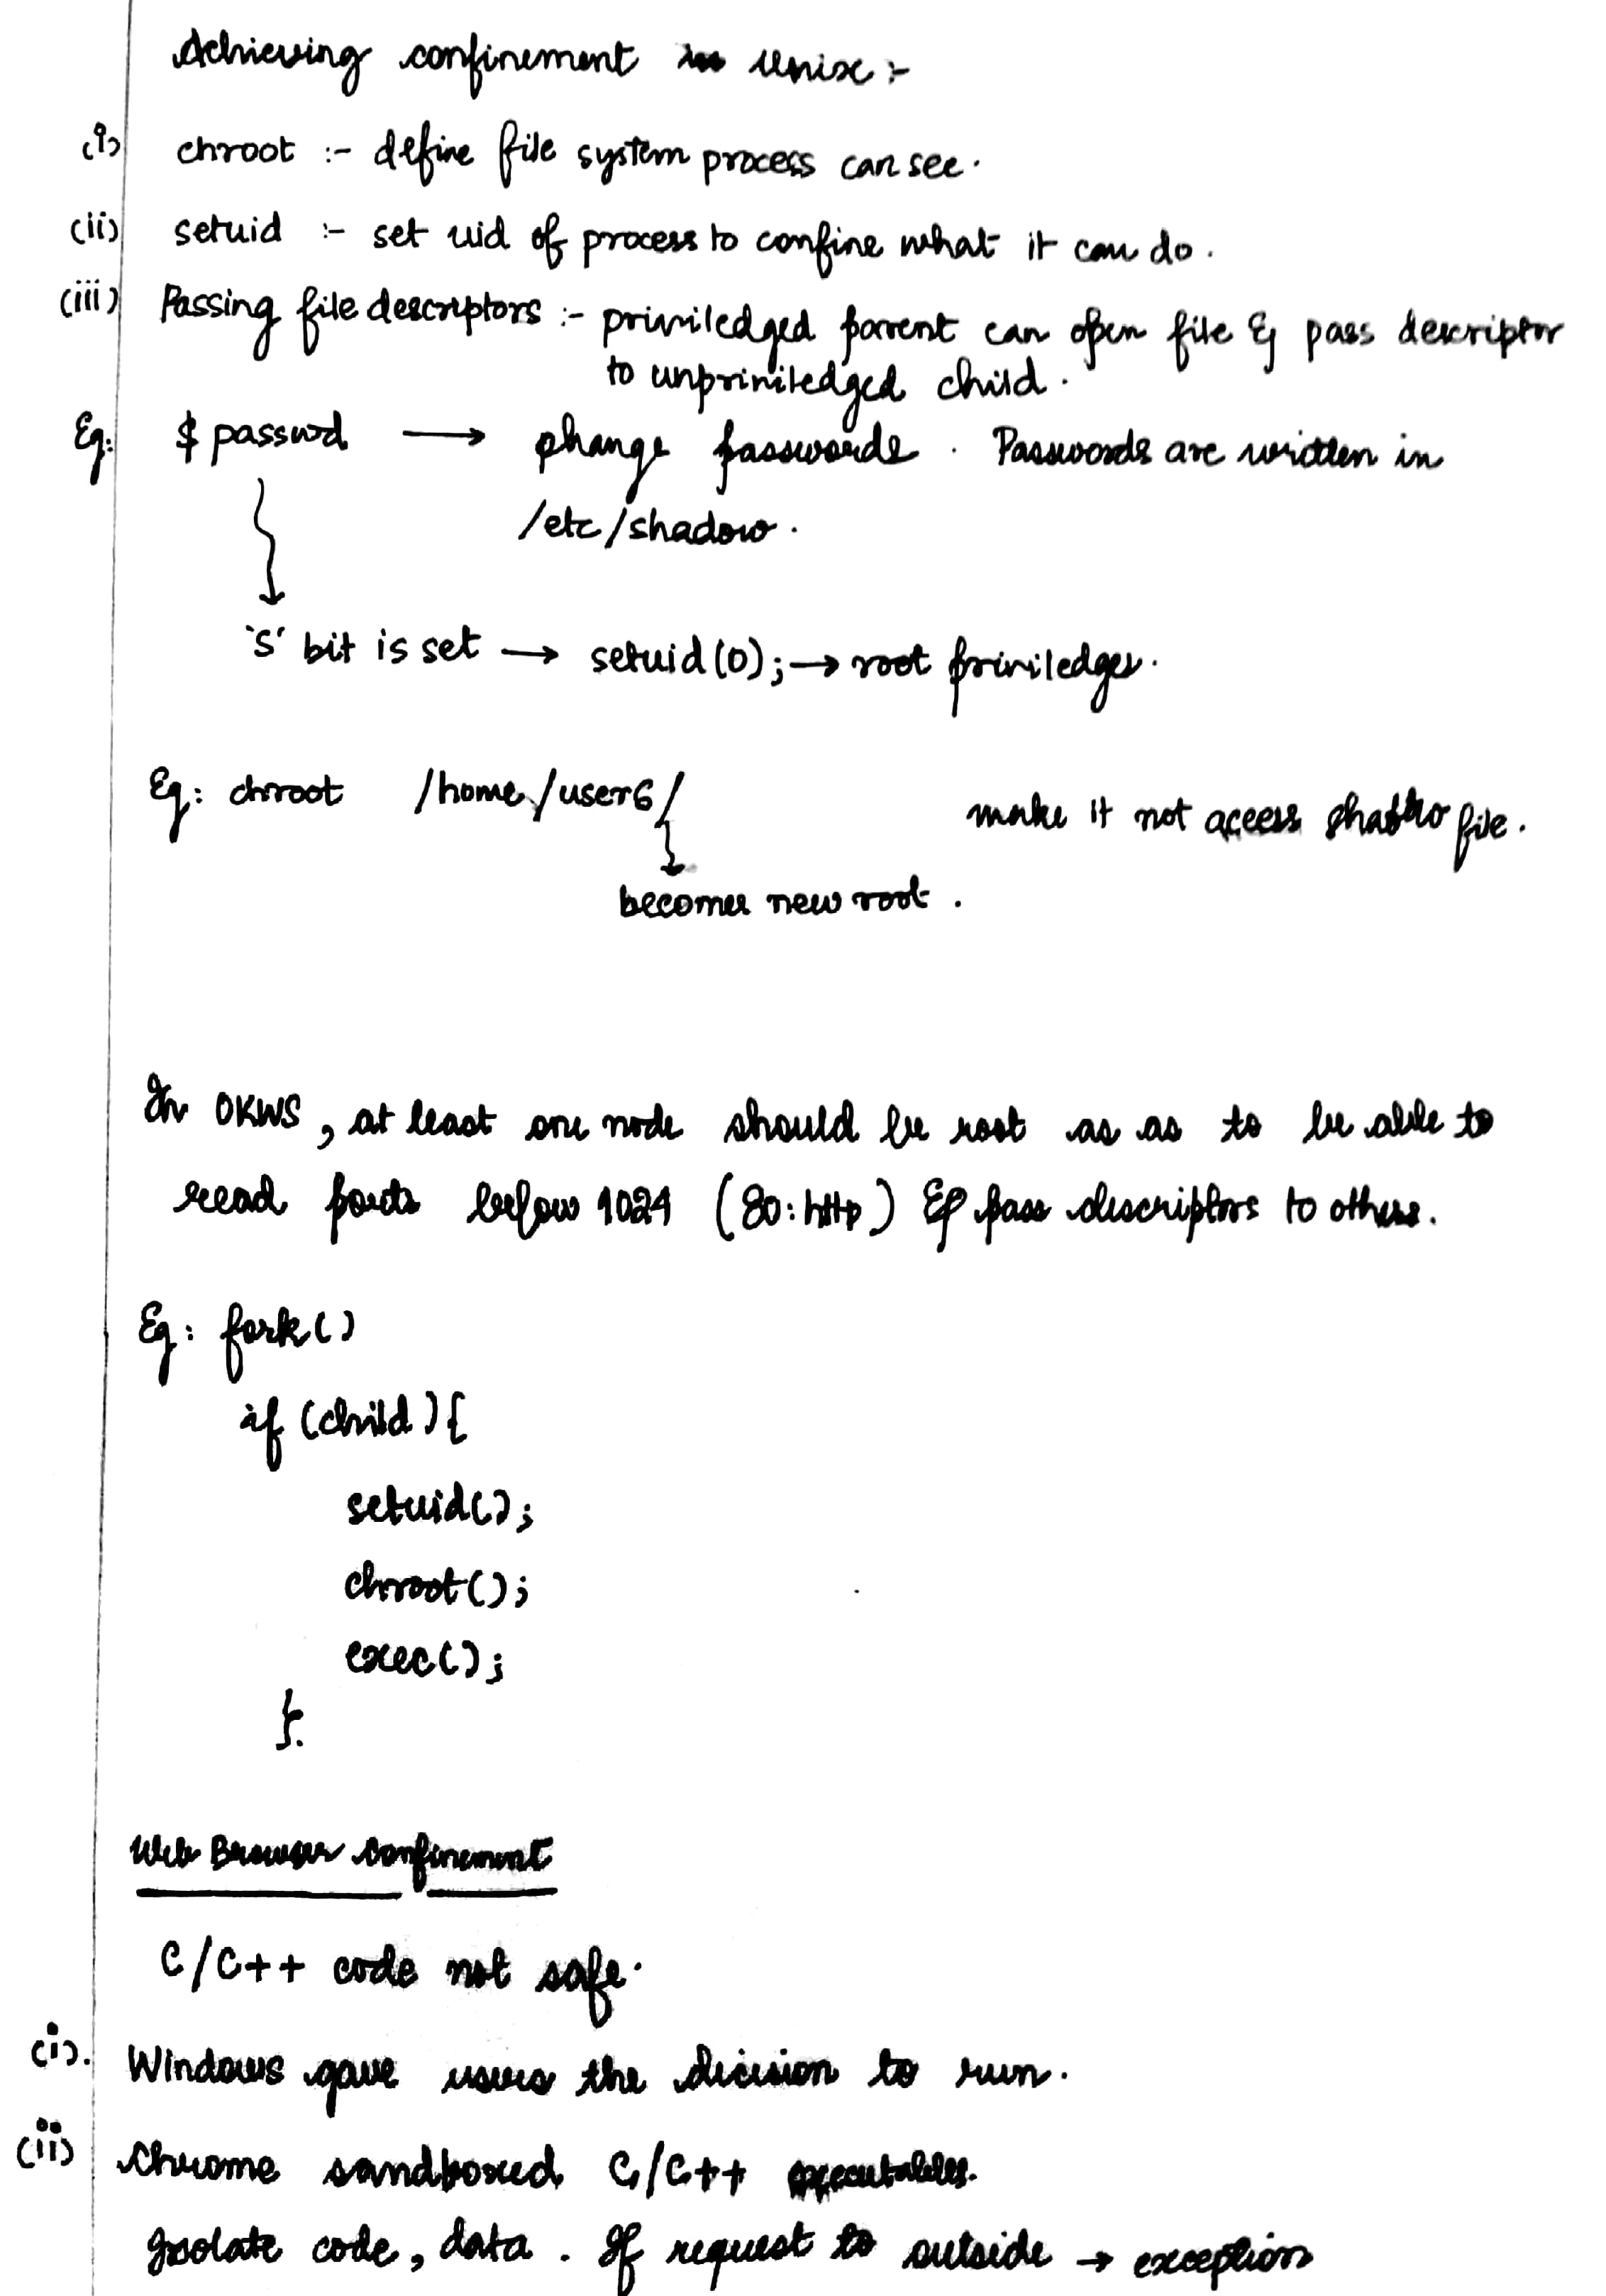 Achieving confinement in Unix :-
(i) chroot :- define file system process can see.
(ii) setuid :- set uid of process to confine what it can do.
(iii) Passing file descriptors :- priviledged parent can open file & pass descriptor
to unpriviledged child.
Eg: $ passwd → change passwords. Passwords are written in
/etc/shadow.
's' bit is set → setuid(0); → root priviledges.
Eg: chroot /home/user6/ make it not access file.
becomes new root.
In OKWS, at least one node should be root as as to be able to
read ports below 1024 (80: http) & pass descriptors to others.
Eg: fork()
if (child) {
setuid();
chroot();
exec();
}.
Web Browser Confinement
C/C++ code not safe.
(i). Windows gave users the decision to run.
(ii) Chrome sandboxed C/C++ executables.
Isolate code, data. If request to outside → exception